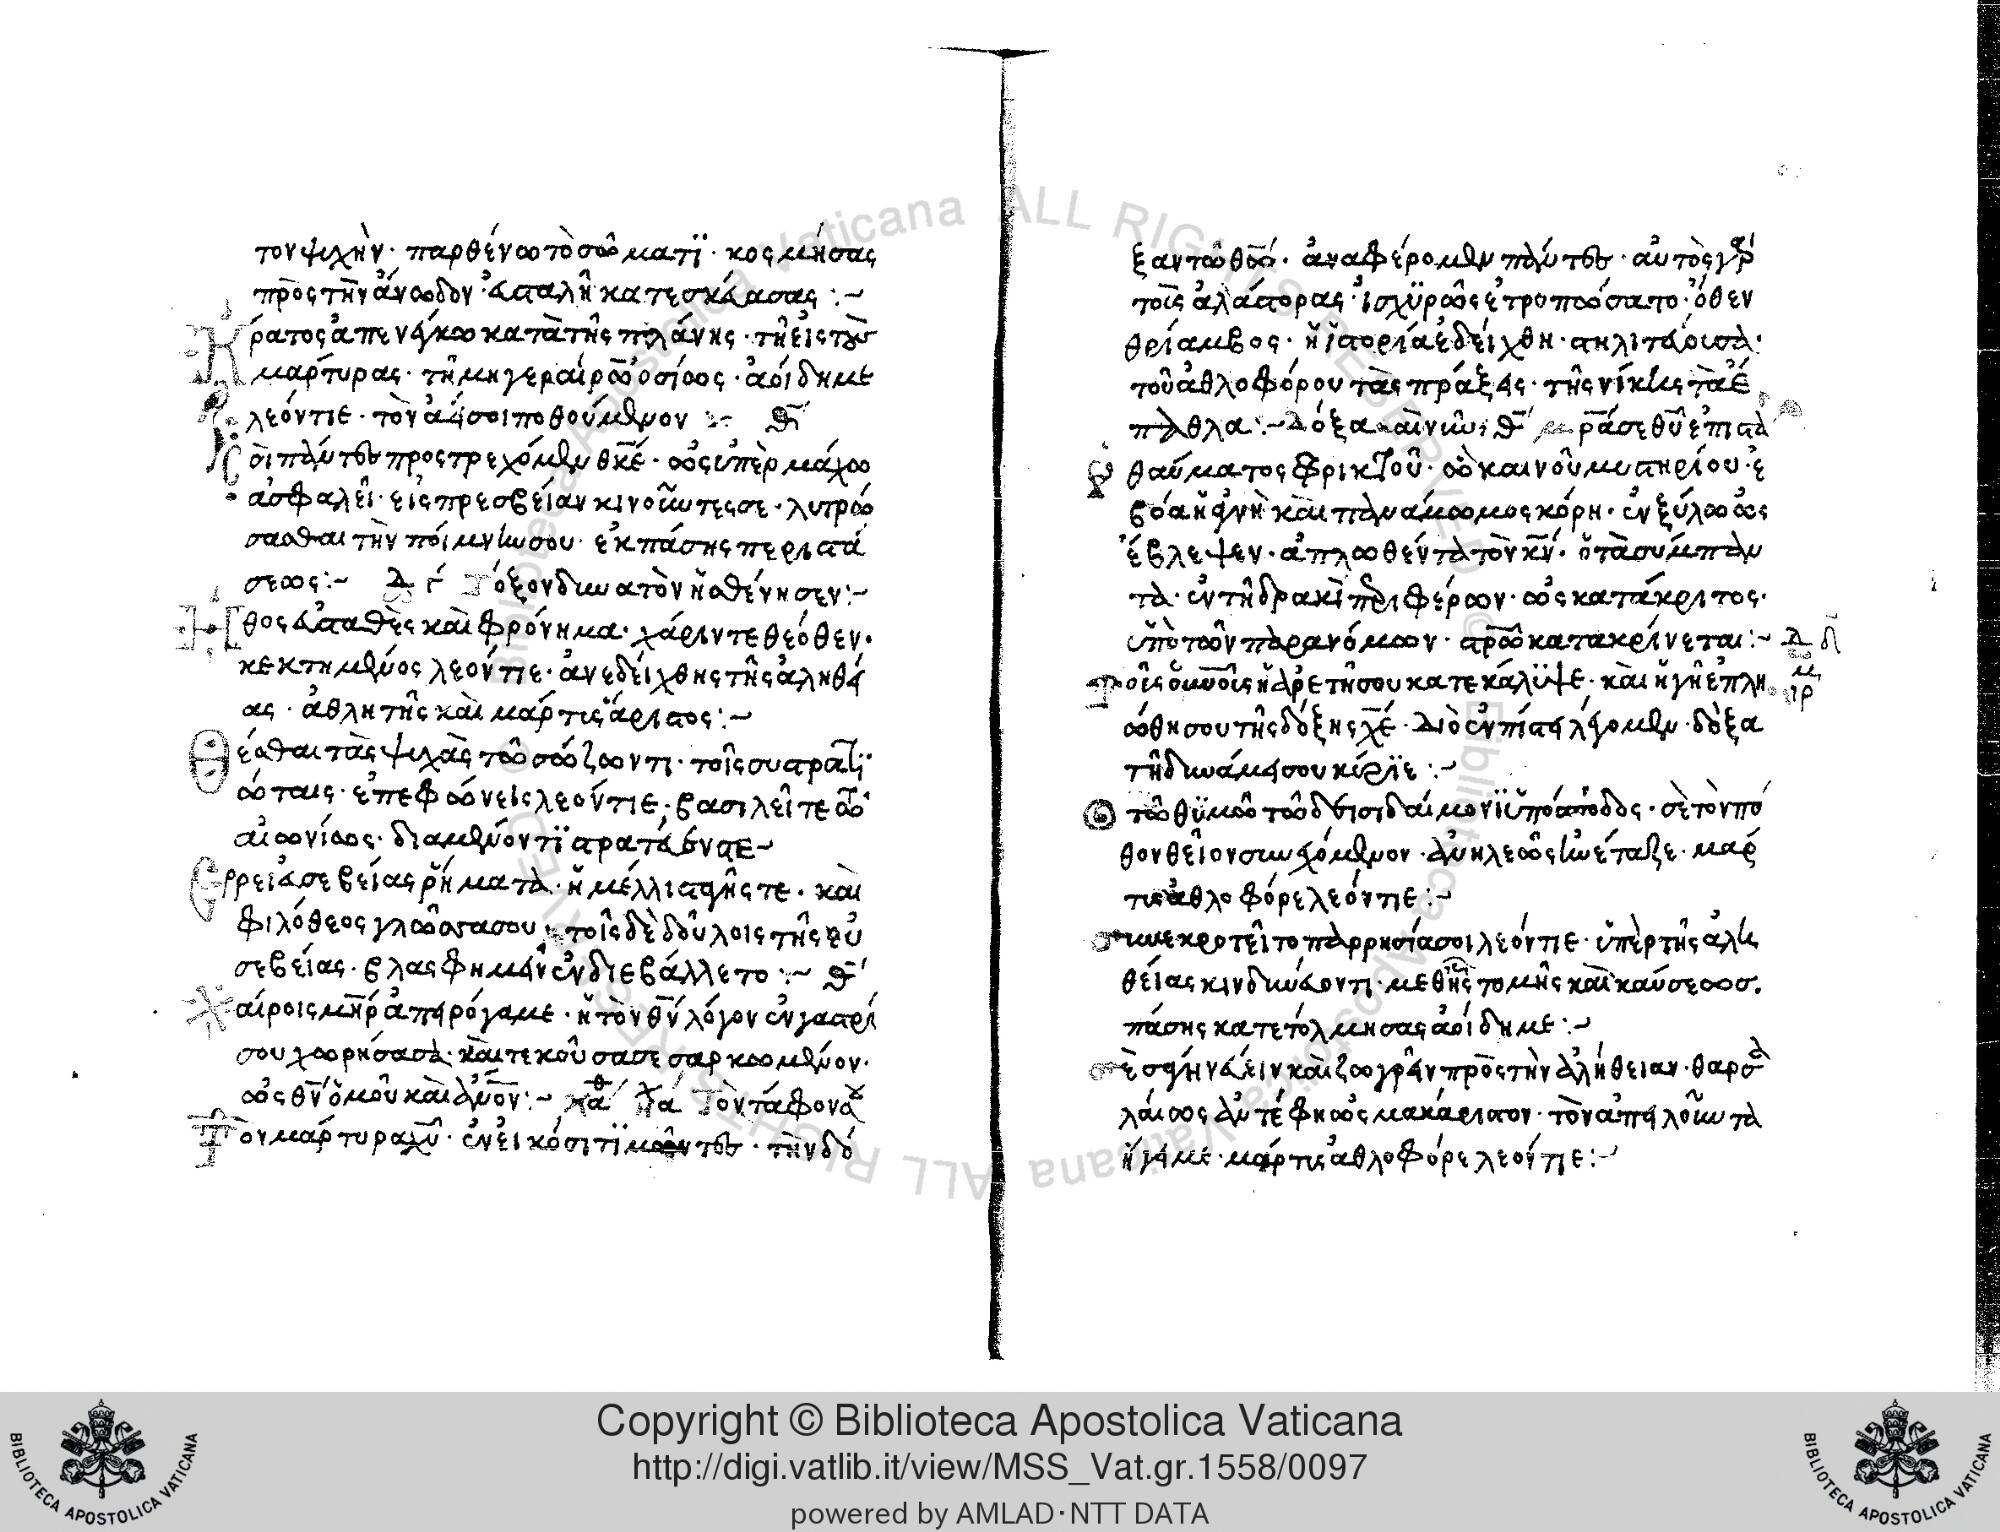 τον ψυχήν · παρθένω τὸ σώματϊ · κοσμήσας
πρὸς τὴν ἄνωδον εὐσταλῆ κατεσκεύασας :~
Κράτος ἀπενέγκω κατὰ τῆς πλάνης · τῆ εἰς τοὺς
μάρτυρας · τῆ μὴ γεραίρων ὁσίως · ἀοίδημε
λεόντιε · τὸν ἀεὶ σοι ποθούμενον :~ θ̅
σὶ πάντες προστρεχόμεν θ̅κ̅ε · ὡς ὑπὲρ μάχω
ἀσφαλεῖ · εἰς πρεσβείαν κινοῦντες σε · λυτρώ
σασθαι τὴν ποίμνην σου · ἐκ πάσης περιστά
σεως :~ Τόξον δυνατὸν ἠσθένησεν :~
Ἦθος εὐσταθὲς καὶ φρόνημα · χάριν τε θεόθεν ·
κεκτημένος λεόντιε · ἀνεδείχθης τῆς ἀληθεί
ας · ἀθλητῆς καὶ μάρτυς ἄριστος :~
Θέσθαι τὰς ψυχὰς τῶ σώζοντι · τοῖς συστρατϊ
ώταις · ἐπεφώνεις λεόντιε · βασιλεῖ τε τῶ
αἰωνίως · διαμένοντϊ στρατεύεσται~
Ἔρρει εὐσεβείας ῥήματα · ἡ μέλλισταγῆς τε · καὶ
φιλόθεος γλῶσσα σου · τοῖς δὲ δούλοις τῆς εὐ
σεβείας · βλασφημεῖν ἐνδιεβάλλετο :~ θ̅
Χαίροις μ̅η̅ρ ἀπειρόγαμε · ἡ τὸν θ̅ν̅ λόγον ἐν γαστρί
σου χωρήσασα · καὶ τεκοῦσα σεσαρκωμένον ·
ὡς θ̅ν̅ ὁμοῦ καὶ α̅ν̅ο̅ν :~ Τὸν τάφον σ
Τὸν μάρτυρα χ̅υ̅ · ἐν εἰκόσι τϊμῶντες · τὴν δό
ξαν τῶ θ̅ω̅ · ἀναφέρομεν πάντες · αὐτὸς γὰρ
τοῖς ἀλάστορας · ἰσχϋρῶς ἐτροπώσατο · ὅθεν
θρίαμβος · ἡ ἱστορία ἐδείχθη · στηλιτεύουσα ·
τοῦ ἀθλοφόρου τὰς πράξεις · τῆς νίκης τὰ ἔ
παθλα :~ Δόξα καὶ νῦν · θ̅ ρᾶσε θ̅υ̅ ἐπι στα
Ὢ θαύματος φρικτοῦ · ὢ καινοῦ μυστηρίου · ἐ
βόα ἡ ἁγνὴ καὶ πανάμωμος κόρη · ἐν ξύλω ὡς
ἔβλεψεν · ἀπλωθέντα τὸν κ̅ν̅ · ὁ τὰ σύμπαν
τα · ἐν τῆ δρακὶ περιφέρων · ὡς κατάκριτος ·
ὑπὸ τῶν παρανόμων · στρῶ κατακρίνεται :~
Τοῖς οὐ̅ν̅οῖς ἡ ἀρετὴ σου κατεκάλϋψε · καὶ ἡ γῆ ἐπλη
ώθη σου τῆς δόξης χ̅ε̅ · διὸ ἐν πίστει λέγομεν · δόξα
τῆ δυνάμει σου κύριε :~
Ὁ τῶ θϋμῶ τῶ δεισιδαίμονϊ ὑπόσποδος · σὲ τὸν πό
θον θεῖον συνεχόμενον · ἀνηλεῶς ἰῶ ἔταξε · μάρ
τυς ἀθλοφόρε λεόντιε :~
Συνεκροτεῖτο παρρησία σοι λεόντιε · ὑπὲρ τῆς ἀλη
θείας κινδυνεύοντι · μεθ ἧς τομῆς καὶ καύσεως ·
πάσης κατετόλμησας ἀοίδημε :~
Σὲ σφήν ζωγρεῖν πρὸς τὴν ἀλήθειαν · θαρσ
λαίως αὐτέφησως μακάριστον · τὸν ἀπειλοῦντα
ἡγεμε · μάρτυς ἀθλοφόρε λεόντιε :~
Copyright © Biblioteca Apostolica Vaticana
http://digi.vatlib.it/view/MSS_Vat.gr.1558/0097
powered by AMLAD·NTT DATA
BIBLIOTECA APOSTOLICA VATICANA
BIBLIOTECA APOSTOLICA VATICANA